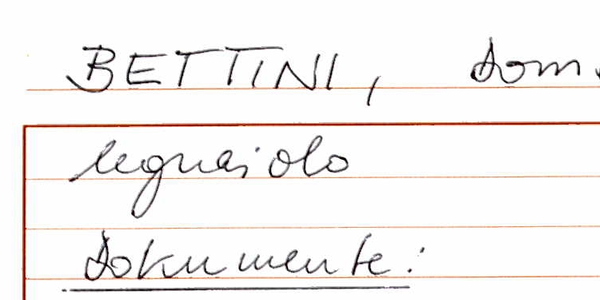 BETTINI, Dom.
legnaiolo
Dokumente: